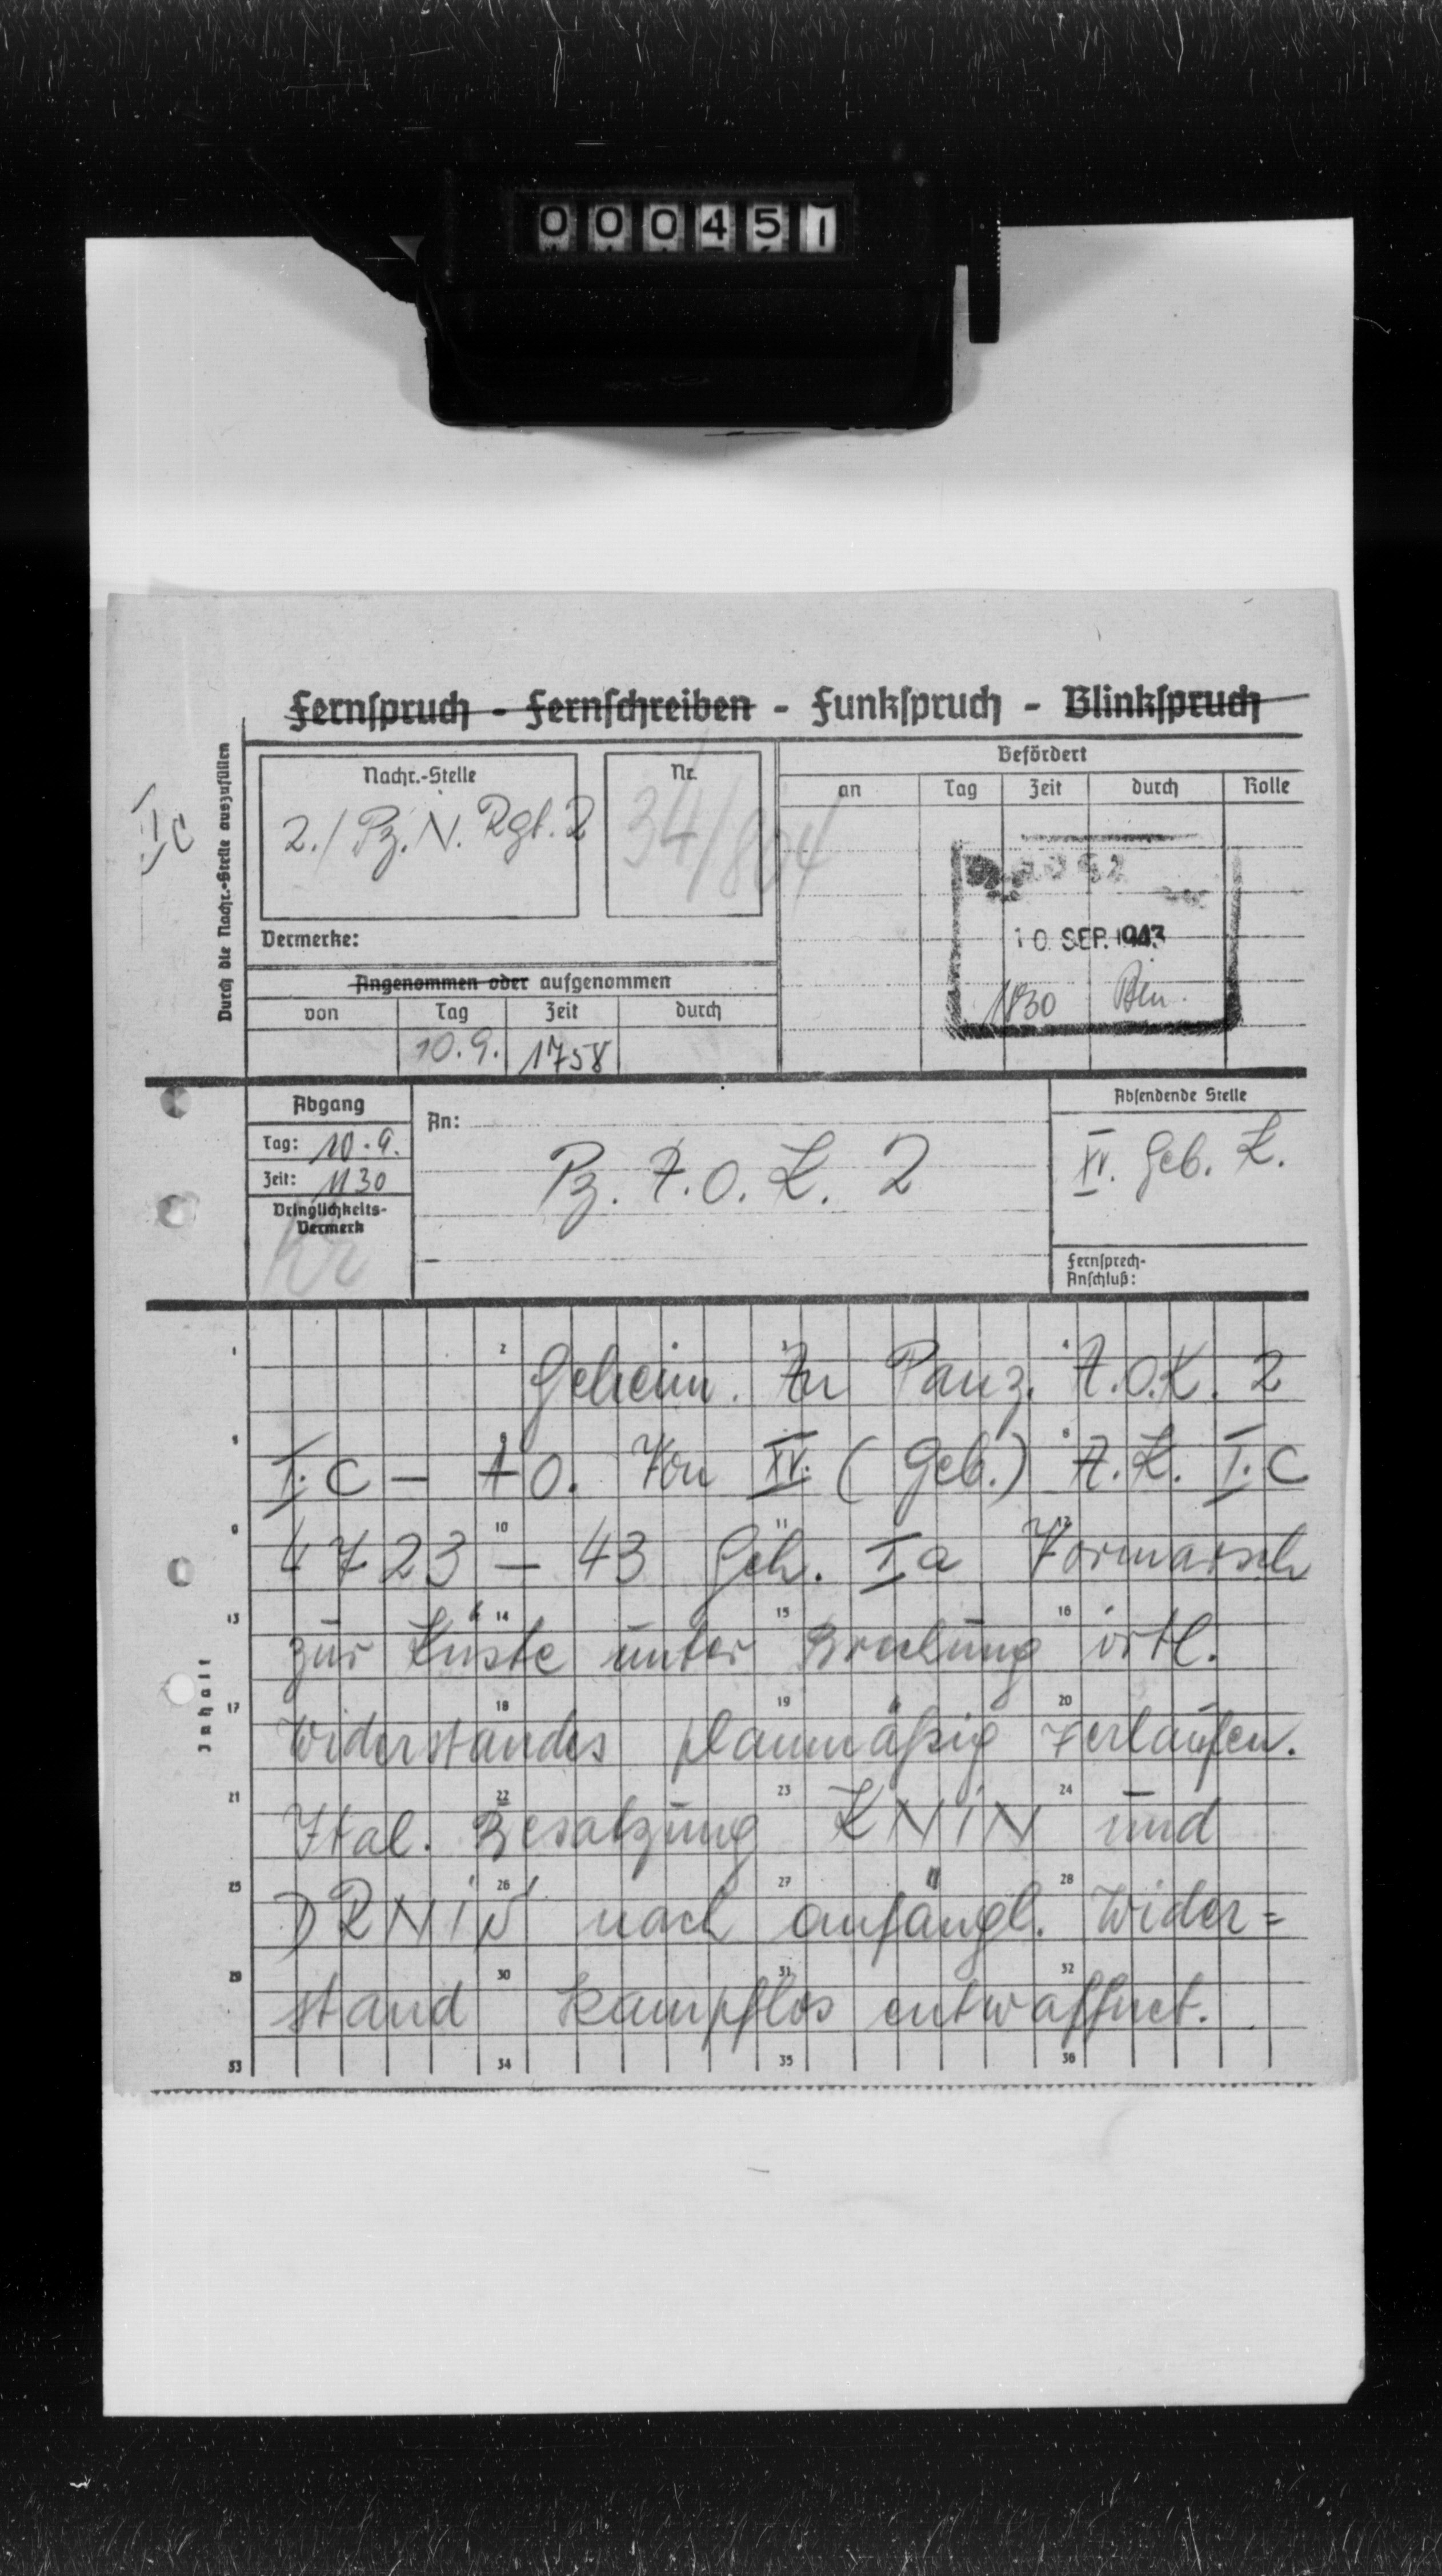 000451
Fernspruch - Fernschreiben - Funkspruch - Blinkspruch
Durch die Nachr.-Stelle auszufüllen
Ic
Nachr.-Stelle
2./Pz. N. Rgt. 2
Nr.
34/804
Befördert
an Tag Zeit durch Rolle
10. SEP. 1943
1830
Vermerke:
Angenommen oder aufgenommen
von Tag Zeit durch
10.9. 1758
Abgang
Tag: 10.9.
Zeit: 1130
Dringlichkeits-
Vermerk
Kr
An:
Pz. A.O.K. 2
Absendende Stelle
XV. Geb. K.
Fernsprech-
Anschluß:
Inhalt
1 2 3 4
Geheim. An Panz. A.O.K. 2
5 6 8
I.C – AO. Von XV. (Geb.) A.K. I.C
9 10 11 12
4723 – 43 Geh. Ia Vormarsch
13 14 15 16
zur Küste unter Brechung örtl.
17 18 19 20
Widerstandes planmäßig verlaufen.
21 22 23 24
Ital. Besatzung KNIN und
25 26 27 28
DRNIŠ nach anfängl. Wider=
29 30 31 32
stand kampflos entwaffnet.
33 34 35 36